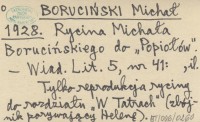 BORUCIŃSKI Michał
1928. Rycina Michała
Borucińskiego do „Popiołów".
– Wiad. Lit. 5, nr 41: , il.
Tylko reprodukcja ryciny
do rozdziału „W Tatrach" (zbój-
nik porywający Helenę).